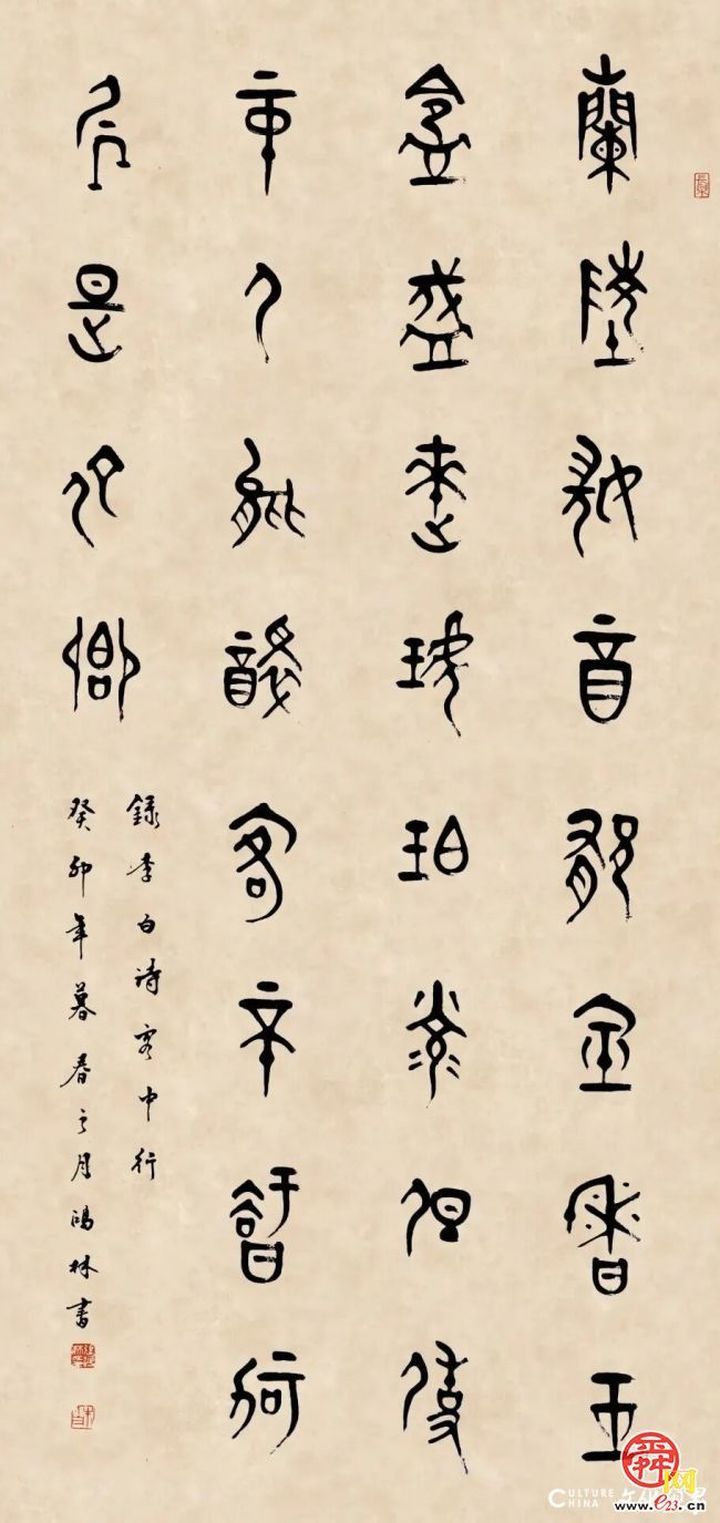 蘭陵美酒郁金香玉
盌盛來琥珀光但使
主人能醉客不知何
処是他鄉
録李白詩客中行
癸卯年暮春之月鴻林書
舜网
CULTURE CHINA
www.e23.cn